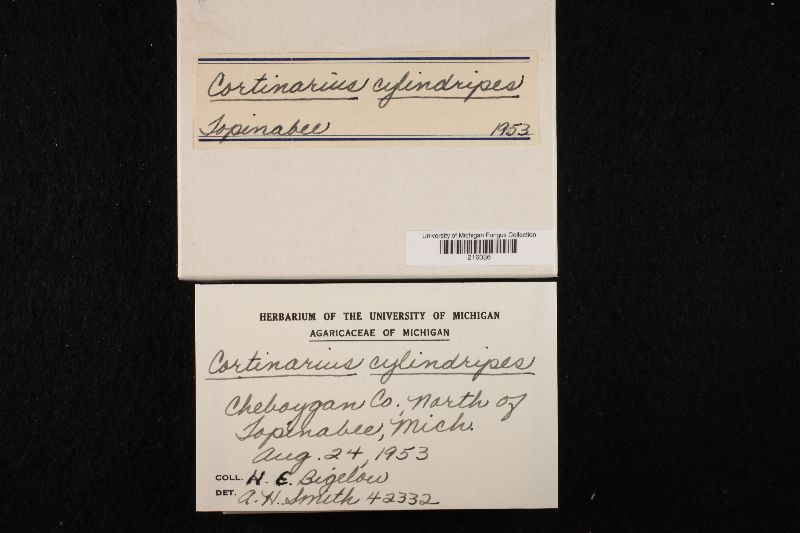 Cortinarius cylindripes
Topinabee 1953
University of Michigan Fungus Collection
216036
HERBARIUM OF THE UNIVERSITY OF MICHIGAN
AGARICACEAE OF MICHIGAN
Cortinarius cylindripes
Cheboygan Co., North of
Topinabee, Mich.
Aug. 24, 1953
COLL. H. E. Bigelow
DET. A. H. Smith 42332